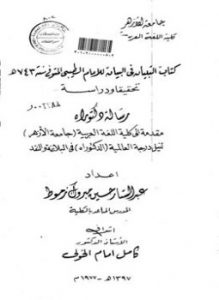 جامعة الأزهر
كلية اللغة العربية
كتاب التبيان فى البيان للإمام الطيبى المتوفى سنة ٧٤٣ هـ
تحقيقا ودراسة
رسالة دكتوراه
مقدمة الى كلية اللغة العربية ( جامعة الأزهر )
لنيل درجة العالمية ( الدكتوراه ) فى البلاغة والنقد
إعداد
عبد الستار حسين مبروك زموط
المدرس المساعد بالكلية
إشراف
الأستاذ الدكتور
كامل امام الخولى
١٣٩٧ هـ - ١٩٧٧ م